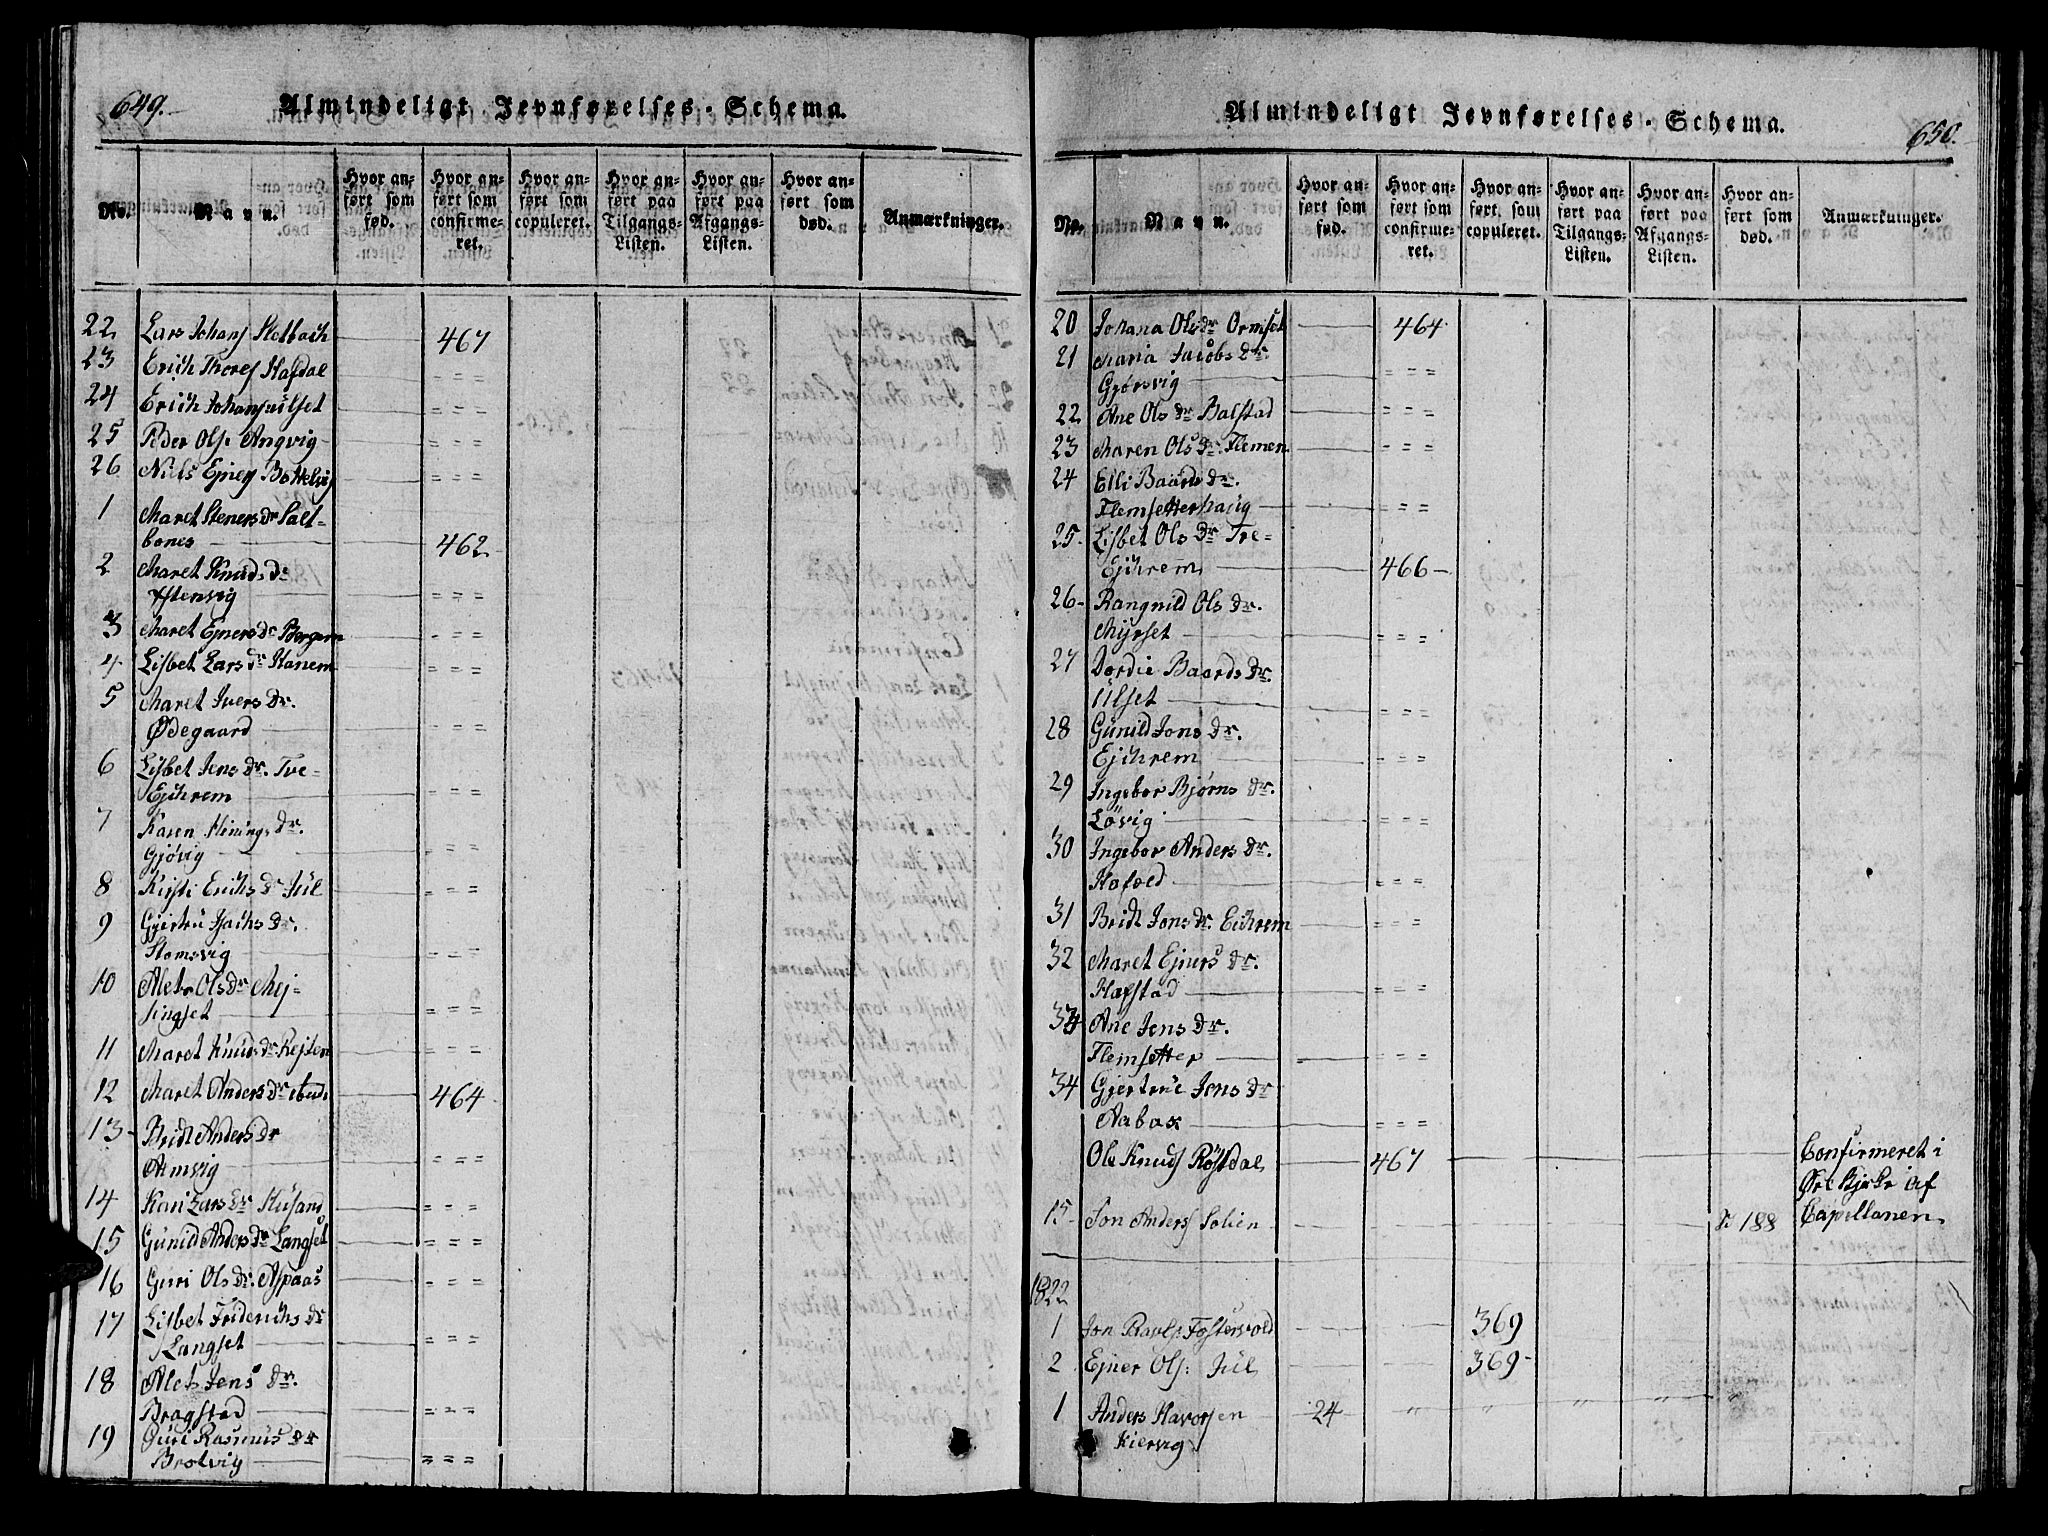 649.
Almindeligt Jevnførelses-Schema.
No. Navn. Hvor anført som fød. Hvor anført som confirmeret. Hvor anført som copuleret. Hvor anført paa Tilgangs-Listen. Hvor anført paa Afgangs-Listen. Hvor anført som død. Anmærkninger.
22 Lars Johans 467
23 Erich Thores Hafdal = = =
24 Erich Johans Ulset = = =
25 Peder Ols: Angvig = = =
26 Niels Ejners = = =
1 Maret Steners Dr Salt-
bones 462
2 Maret Knuds Dr
= = =
3 Maret Ejners Dr Bergem = = =
4 Lisbet Lars Dr Kanem = = =
5 Maret Ivers Dr.
Ødegaard = = =
6 Lisbet Jens Dr. Tre-
Ejkrem = = =
7 Karen Henings Dr.
Gjøvig = = =
8 Kirsti Erichs Dr Jul = = =
9 Gjertru Isachs Dr.
Stomsvig = = =
10 Alet Ols Dr Mej-
singset = = =
11 Maret Knuds Dr Rejten = = =
12 Maret Anders Dr 464
13 Bridt Anders Dr
Armvig = = =
14 Kari Lars Dr Husand = = =
15 Gunild Anders Dr Langset = = =
16 Guri Ols Dr. Aspaas = = =
17 Lisbet Friderichs Dr
Langset = = =
18 Alet Jens Dr.
Bragstad = = =
19 Guri Rasmus Dr
Brotvig = = =
Almindeligt Jevnførelses-Schema.
650.
No. Navn. Hvor anført som fød. Hvor anført som confirmeret. Hvor anført som copuleret. Hvor anført paa Tilgangs-Listen. Hvor anført paa Afgangs-Listen. Hvor anført som død. Anmærkninger.
20 Johana Ols Dr Ormset 464
21 Maria Jacobs Dr.
Gjørsvig = = =
22 Ane Ols Dr Balstad = = =
23 Maren Ols Dr. Flemen = = =
24 Elli Baards Dr.
Flemsetterhaug = = =
25. Lisbet Ols Dr Tre-
Ejkrem 466
26 Rangnild Ols Dr.
Myrset = = =
27 Dordie Baards Dr.
Ulset = = =
28 Gunild Jons Dr.
Ejkrem = = =
29 Ingebor Bjørns Dr.
Løvig = = =
30 Ingebor Anders Dr.
Hafold = = =
31 Bridt Jons Dr. Eikrem = = =
32 Maret Ejners Dr.
Hafstad = = =
33 Ane Jens Dr.
Flemsetter = = =
34 Gjertrue Jens Dr
Aabax = = =
Ole Knuds Røstdal 467 Confirmeret i
Øre Kirke af
15 Jon Anders Solien 188 Capellanen
1822
1 Jon Fostervold 369
2 Ejner Ols: Jul 369
1 Anders Havorsen 24 " " " " "
Kiersvig